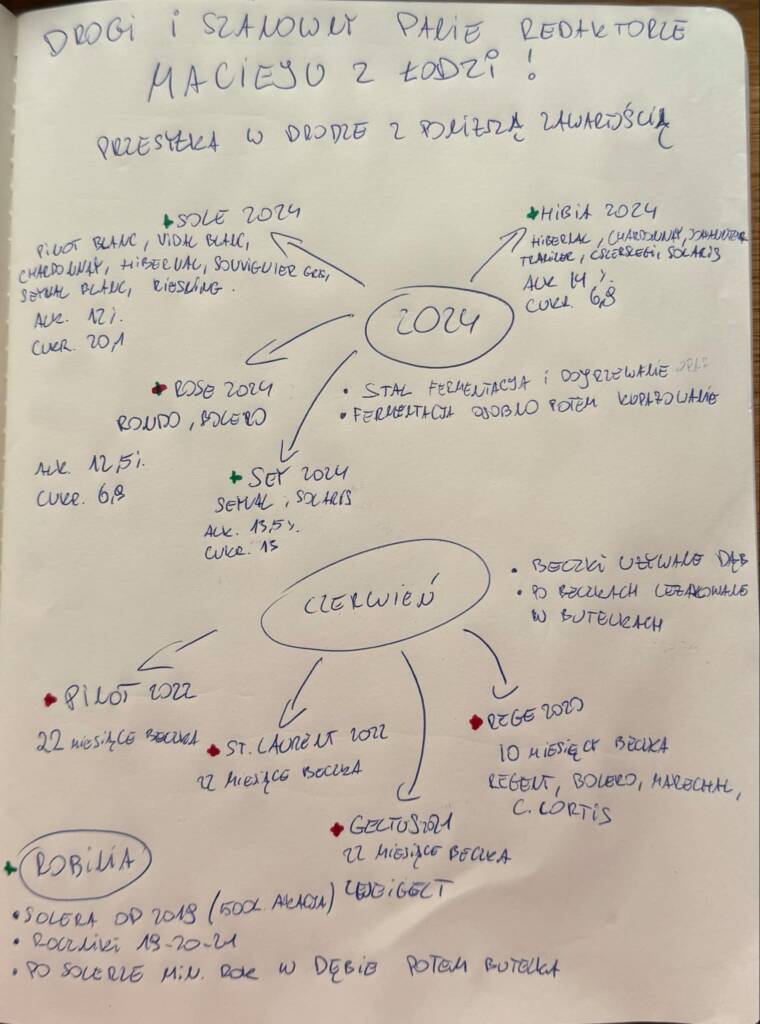 DROGI I SZANOWNY PANIE REDAKTORZE
MACIEJU Z ŁODZI!
PRZESYŁKA W DRODZE Z PONIŻSZĄ ZAWARTOŚCIĄ
+SOLE 2024
PINOT BLANC, VIDAL BLANC,
CHARDONNAY, HIBERNAL, SOUVIGNIER GRIS,
SEYVAL BLANC, RIESLING.
ALK. 12%.
CUKR. 20,1
+HIBIA 2024
HIBERNAL, CHARDONNAY, JOHANNITER
TRAMINER, CSERSZEGI, SOLARIS
ALK 14%.
CUKR. 6,9
2024
+ROSE 2024
RONDO, BOLERO
ALK. 12,5%.
CUKR. 6,9
• STAL FERMENTACJA I DOJRZEWANIE
• FERMENTACJA OSOBNO POTEM KUPAŻOWANIE
+SEY 2024
SEYVAL, SOLARIS
ALK. 13,5%.
CUKR. 13
CZERWIEŃ
• BECZKI UŻYWANE DĄB
• PO BECZKACH LEŻAKOWANE
W BUTELKACH
+PINOT 2022
22 MIESIĄCE BECZKA
+ST. LAURENT 2022
22 MIESIĄCE BECZKA
+REGE 2020
10 MIESIĘCY BECZKA
REGENT, BOLERO, MARECHAL,
C. CORTIS
+GELTUS 2021
22 MIESIĄCE BECZKA
ZWEIGELT
+ROBINIA
• SOLERA OD 2019 (500L AKACJA)
• ROCZNIKI 19-20-21
• PO SOLERZE MIN. ROK W DĘBIE POTEM BUTELKA